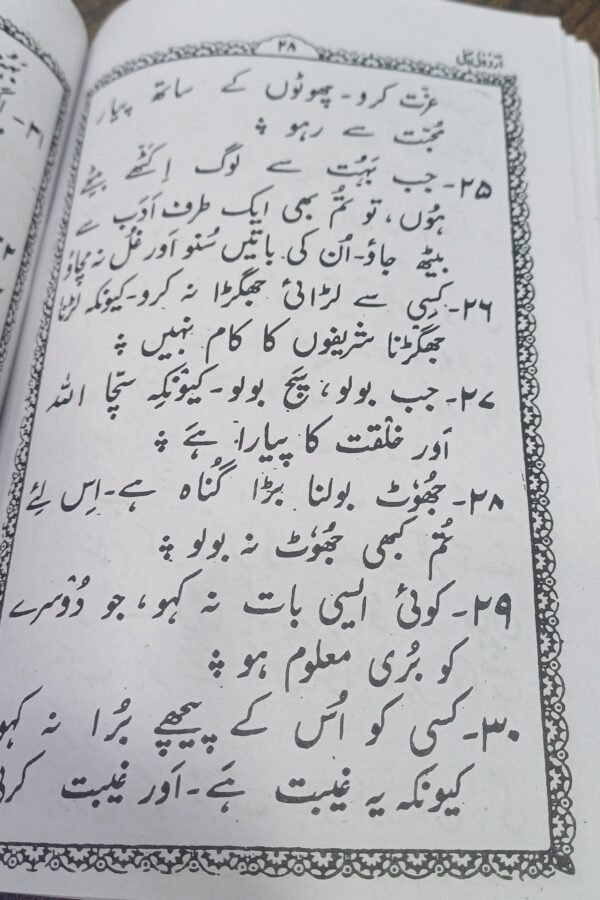 ۲۸
عزّت کرو۔ چھوٹوں کے ساتھ پیار
مُحبّت سے رہو ۞
۲۵۔ جب بَہُت سے لوگ اِکٹّھے بیٹھے
ہُوں، تو تُم بھی ایک طرف اَدَب سے
بیٹھ جاؤ۔ اُن کی باتیں سُنو اَور غُل نہ مچاؤ
۲۶۔ کِسی سے لڑائی جھگڑا نہ کرو۔ کیونکہ لڑنا
جھگڑنا شریفوں کا کام نہیں ۞
۲۷۔ جب بولو، سَچ بولو۔ کیونکہ سَچّا اللہ
اَور خلْقت کا پیارا ہَے ۞
۲۸۔ جُھوٹ بولنا بڑا گُناہ ہے۔ اِس لِئے
تُم کبھی جُھوٹ نہ بولو ۞
۲۹۔ کوئی ایسی بات نہ کہو، جو دُوسرے
کو بُری معلوم ہو ۞
۳۰۔ کسی کو اُس کے پیچھے بُرا نہ کہو
کیونکہ یہ غیبت ہَے۔ اَور غیبت